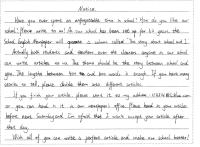 Notice
Have you ever spent an unforgettable time in school? How do you like our
school? Please write to us! As our school has been set up for 60 years, the
School English Newspaper will a column called "The story about school and I".
Actually both students and teachers over the classes in our school
can write articles to us. The theme should be the story between school and
you. The lengths between and one words is except. If you have many
stories to tell, please divide them into different articles.
If you finish your article, please send it to my address
or you can hand it in our newspaper's office. Please hand in your articles
before next Saturday, and I'm afraid that I won't accept your articles after
that day.
Wish all of you can write a perfect article and make our school better!